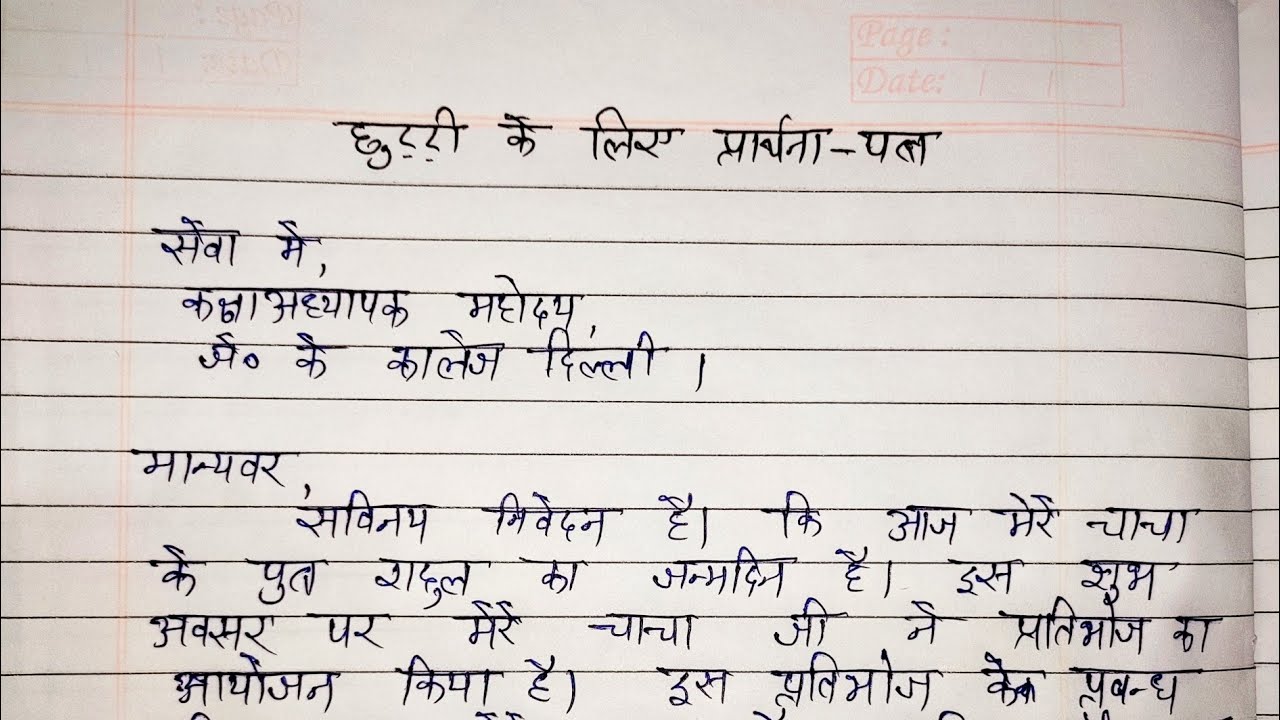 Page:
Date:
छुट्टी के लिए प्रार्थना-पत्र
सेवा मे,
कक्षाअध्यापक महोदय,
जे० के कालेज दिल्ली ।
मान्यवर,
सविनय निवेदन है। कि आज मेरे चाचा
के पुत्र रादुल का जन्मदिन है। इस शुभ
अवसर पर मेरे चाचा जी ने प्रतिभोज का
आयोजन किया है। इस प्रतिभोज के प्रबन्ध